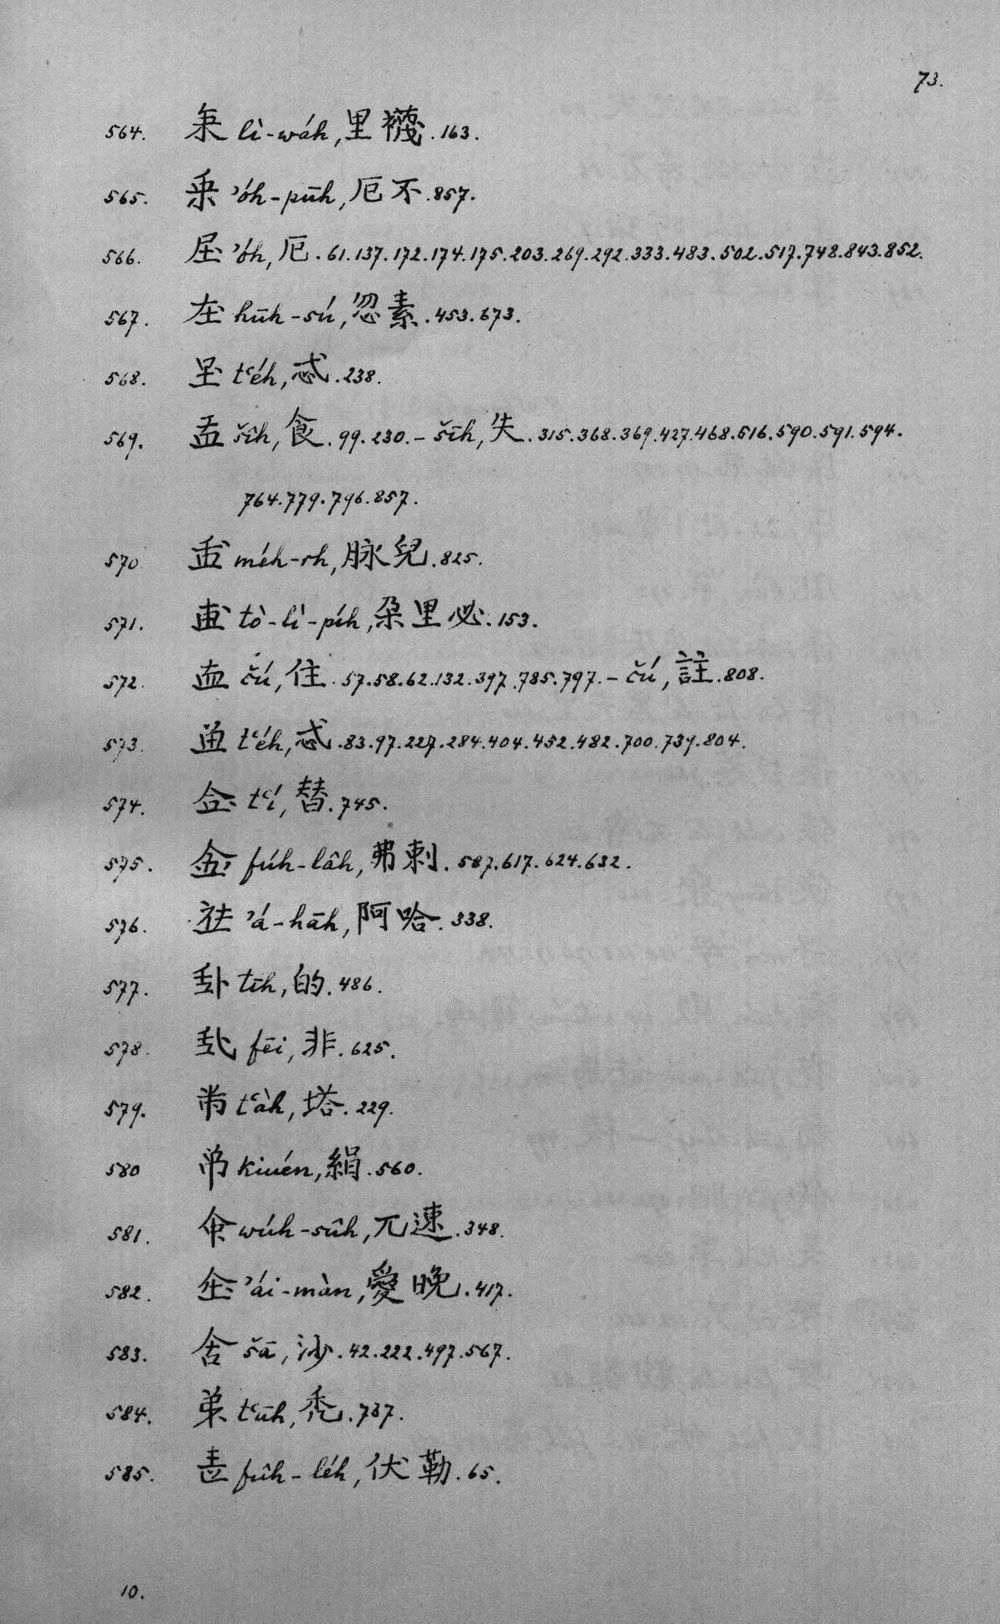 73.
564. li-wáh, 里襪.163.
565. ’óh-pūh, 厄不.857.
566. ’óh, 厄.61.137.172.174.175.203.269.292.333.483.502.517.748.843.852.
567. hūh-sú, 忽素.453.673.
568. t‘éh, 忒.238.
569. šîh, 食.99.230.–šīh, 失.315.368.369.427.468.516.590.591.594.
764.779.796.857.
570. méh-rh, 脉兒.825.
571. tò-lì-píh, 朶里必.153.
572. čú, 住.57.58.62.132.397.785.797.–čú, 註.808.
573. t‘éh, 忒.83.97.227.284.404.452.482.700.739.804.
574. t‘í, 替.745.
575. fúh-lâh, 弗剌.587.617.624.632.
576. ’á-hāh, 阿哈.338.
577. tīh, 的.486.
578. fēi, 非.625.
579. t‘àh, 塔.229.
580 kiuén, 絹.560.
581. wúh-sûh, 兀速.348.
582. ’ái-màn, 愛晚.417.
583. šā, 沙.42.222.497.567.
584. t‘ūh, 禿.737.
585. fûh-léh, 伏勒.65.
10.